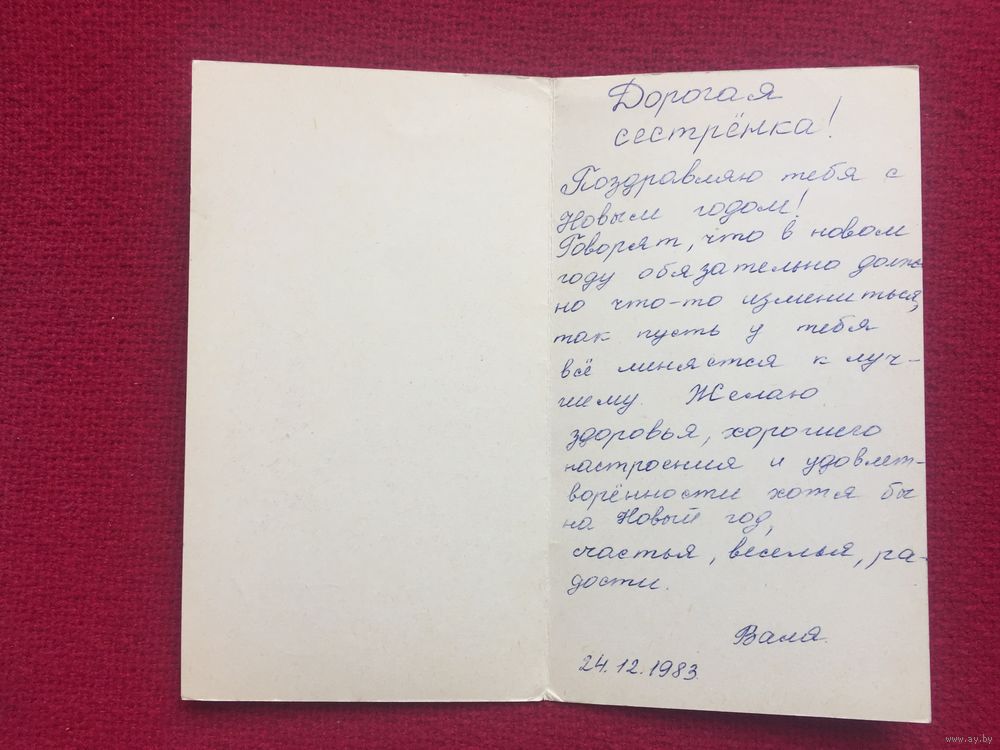 Дорогая
сестрёнка!
Поздравляю тебя с
Новым годом!
Говорят, что в новом
году обязательно долж-
но что-то измениться,
так пусть у тебя
всё меняется к луч-
шему. Желаю
здоровья, хорошего
настроения и удовлет-
ворённости хотя бы
на Новый год,
счастья, веселья, ра-
дости.
Валя.
24.12.1983.
www.ay.by